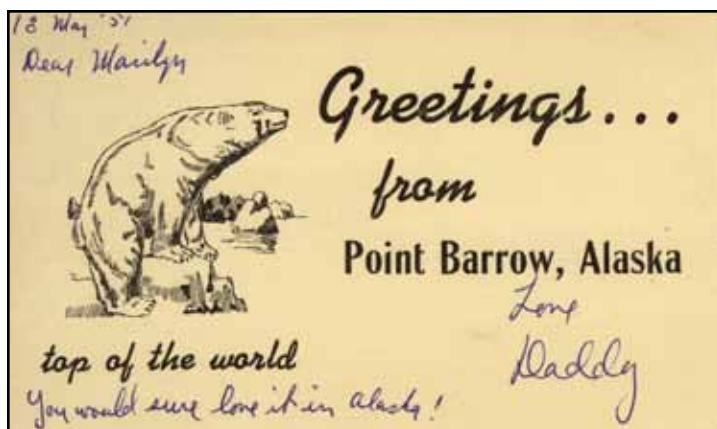 18 May '51
Dear Marilyn
Greetings...
from
Point Barrow, Alaska
Love
Daddy
top of the world
You would sure love it in Alaska!